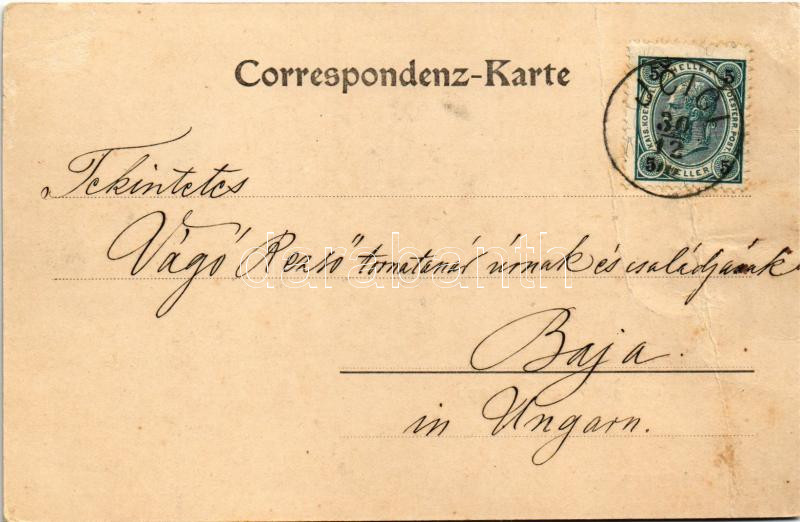 Correspondenz-Karte
5 HELLER 5
KAIS. KOE OESTERR. POST.
5 HELLER 5
30
12
Tekintetes
Vágó Rezső tornatanár úrnak és családjának
Baja.
in Ungarn.
darabanth